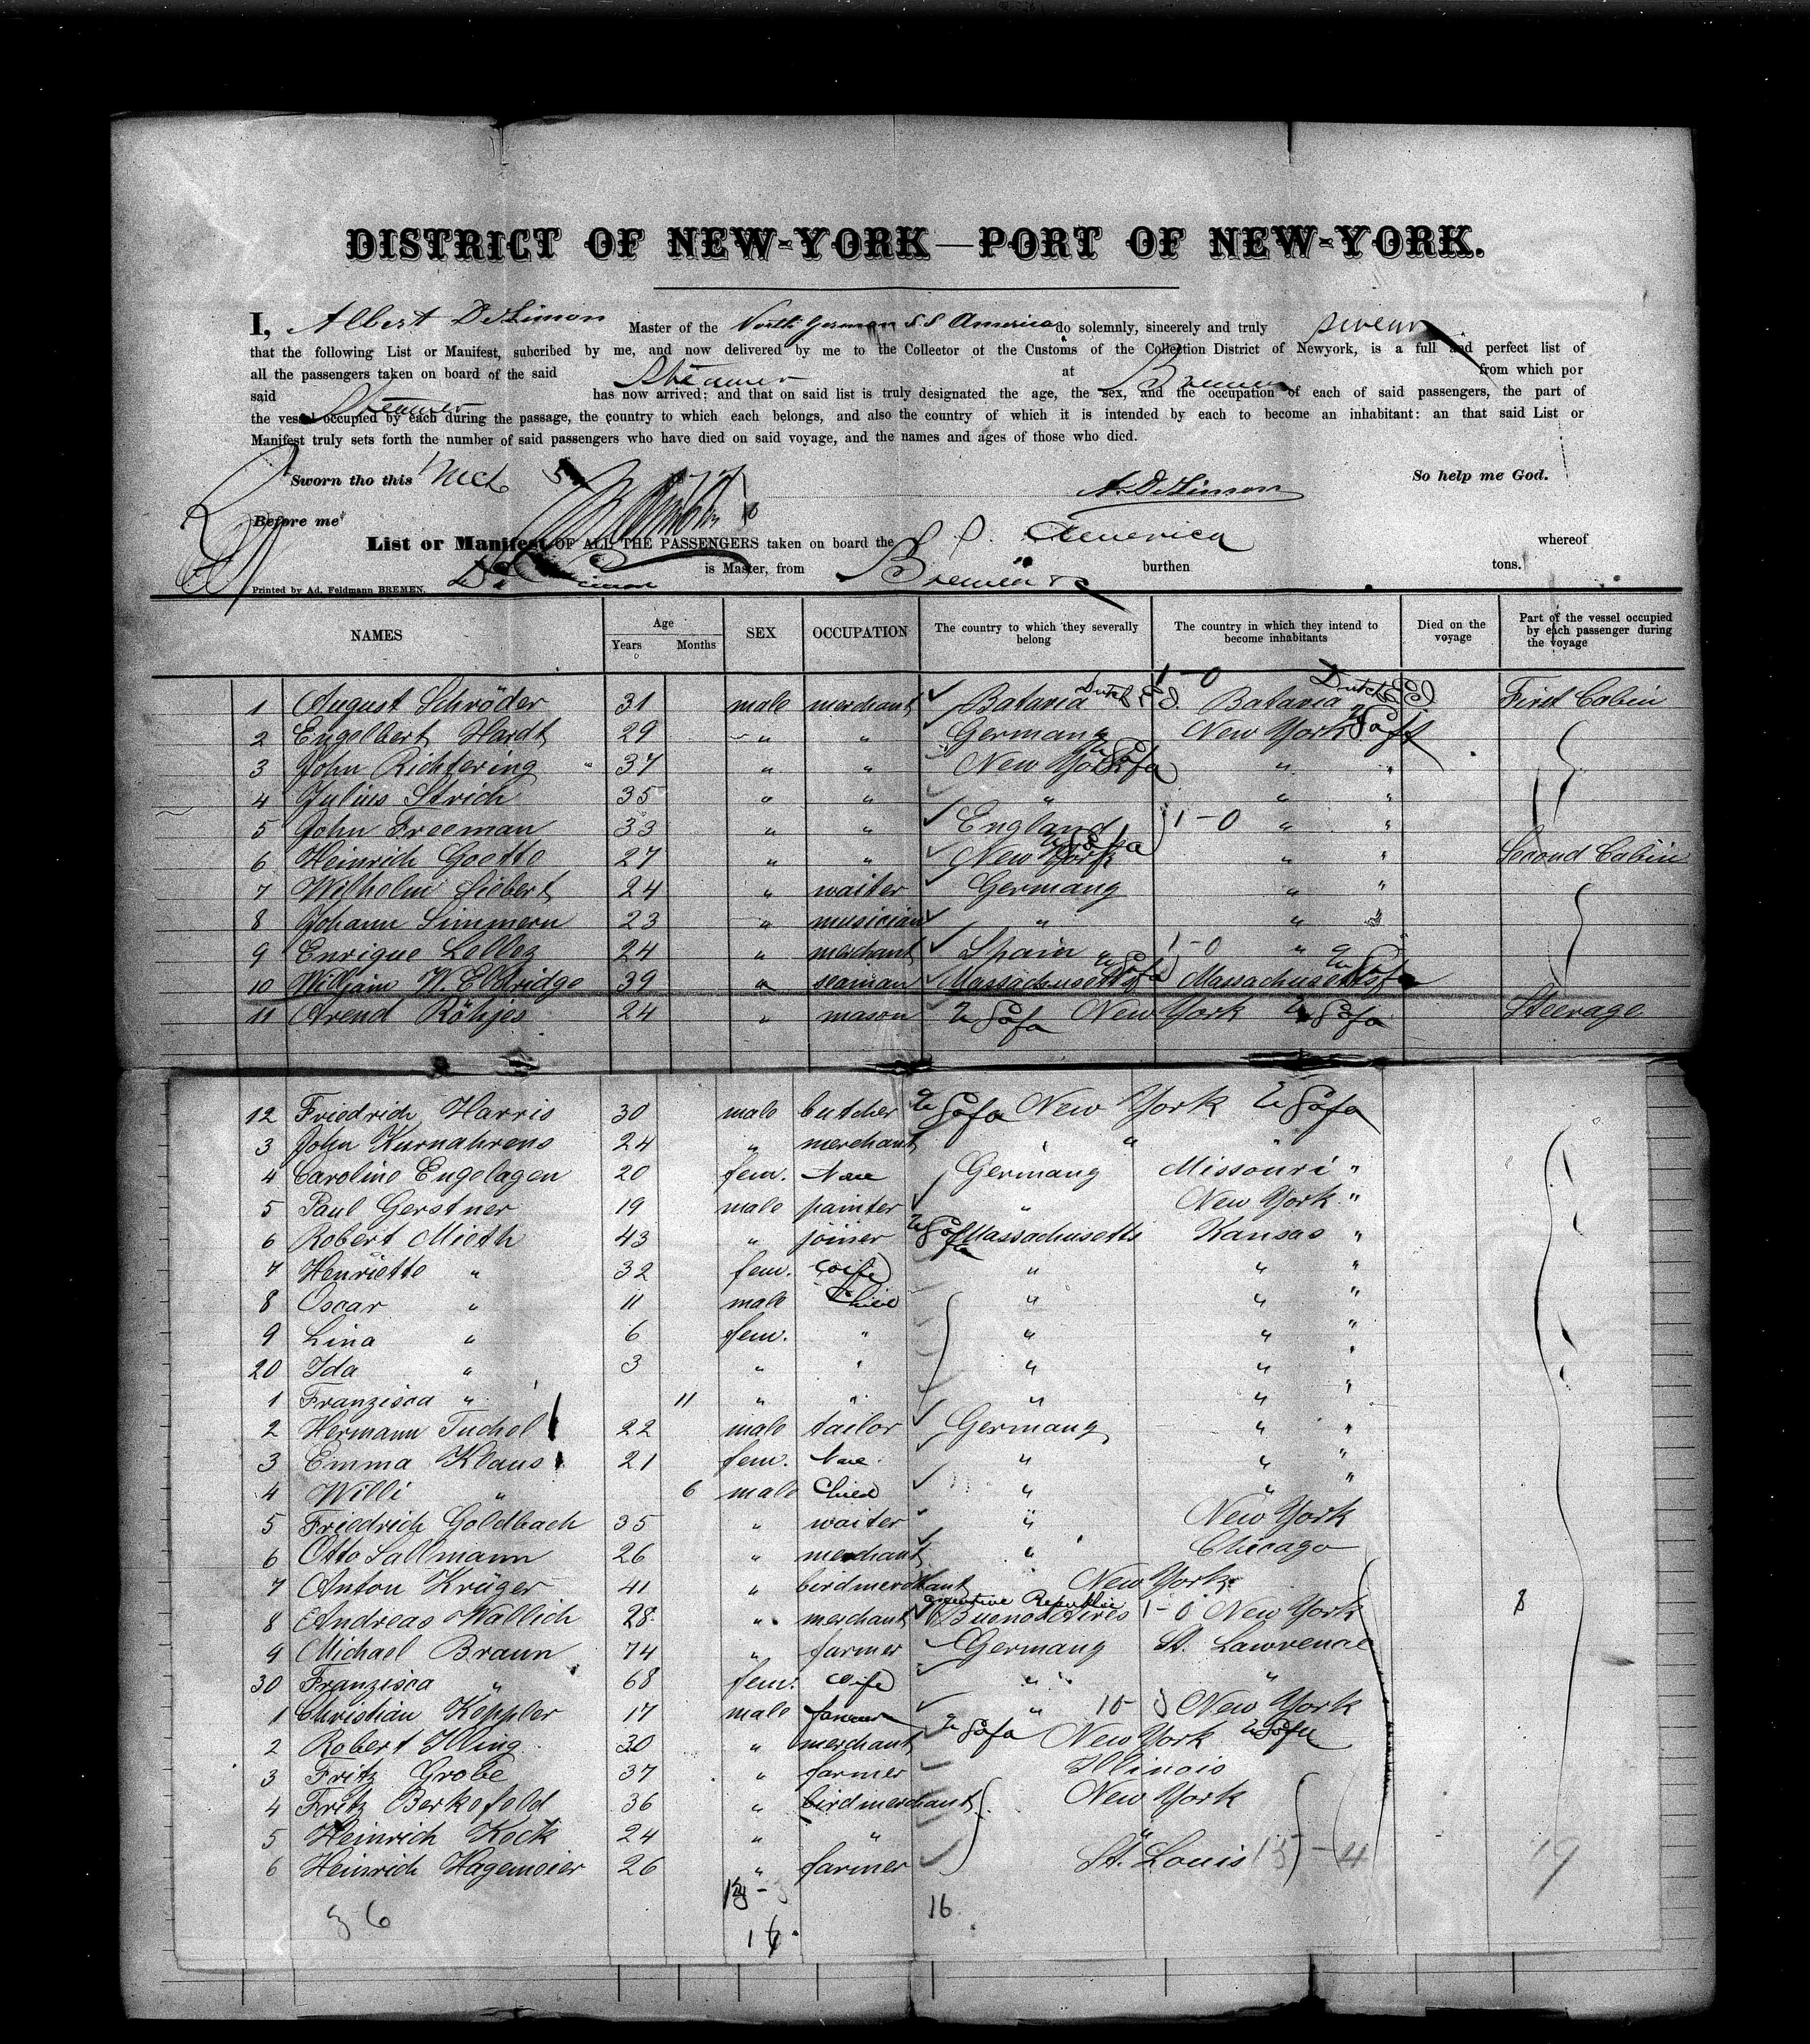 DISTRICT OF NEW-YORK—PORT OF NEW-YORK.
I, Albert DeLimon Master of the North German S S America do solemnly, sincerely and truly swear
that the following List or Manifest, subcribed by me, and now delivered by me to the Collector ot the Customs of the Collection District of Newyork, is a full and perfect list of
all the passengers taken on board of the said Steamer at Bremen from which por
said Steamer has now arrived: and that on said list is truly designated the age, the sex, and the occupation of each of said passengers, the part of
the vessel occupied by each during the passage, the country to which each belongs, and also the country of which it is intended by each to become an inhabitant: an that said List or
Manifest truly sets forth the number of said passengers who have died on said voyage, and the names and ages of those who died.
Sworn tho this 5 A. DeLimon So help me God.
Before me
List or Manifest OF ALL THE PASSENGERS taken on board the S. S. America whereof
De Limon is Master, from Bremen burthen tons.
Printed by Ad. Feldmann BREMEN.
NAMES Age Years Months SEX OCCUPATION The country to which they severally belong The country in which they intend to become inhabitants Died on the voyage Part of the vessel occupied by each passenger during the voyage
1 August Schröder 31 male merchant Batavia Dutch E I. 1-0 Batavia Dutch E I First Cabin
2 Engelbert Hardt 29 " " Germany New York U S of A
3 John Richtering 37 " " New York U S of A " "
4 Julius Strich 35 " " " " "
5 John Freeman 33 " " England 1-0 " "
6 Heinrich Goette 27 " " New York U S of A " " Second Cabin
7 Wilhelm Siebert 24 " waiter Germany " "
8 Johann Simmern 23 " musician " " "
9 Enrique Lellez 24 " merchant Spain 1-0 "
10 William W. Eldridge 39 " seaman Massachusetts U S of A Massachusetts U S of A
11 Arend Röhjes 24 " mason U S of A New York U S of A Steerage
12 Friedrich Harris 30 male butcher U S of A New York U S of A
3 John Kurnahrens 24 " merchant " "
4 Caroline Engelagen 20 fem. None Germany Missouri "
5 Paul Gerstner 19 male painter " New York "
6 Robert Mieth 43 " joiner U S of A Massachusetts Kansas "
7 Henriette " 32 fem. wife " " "
8 Oscar " 11 male Child " " "
9 Lina " 6 fem. " " " "
20 Ida " 3 " " " " "
1 Franzisca " 11 " " " " "
2 Hermann Tuchol 22 male tailor Germany " "
3 Emma Klaus 21 fem. None " " "
4 Willi " 6 male Child " " "
5 Friedrich Goldbach 35 " waiter " New York
6 Otto Sallmann 26 " merchant " Chicago
7 Anton Krüger 41 " birdmerchant New York
8 Andreas Wallich 28 " merchant Buenos Aires Argentine Republic 1-0 New York
9 Michael Braun 74 " farmer Germany St. Lawrence
30 Franzisca " 68 fem. wife " "
1 Christian Keppler 17 male farmer " 10 3 New York
2 Robert Illing 30 " merchant U S of A New York U S of A
3 Fritz Grobe 37 " farmer Illinois
4 Fritz Berkefeld 36 " birdmerchant New York
5 Heinrich Kock 24 " " "
6 Heinrich Hagemeier 26 " farmer St. Louis 13-4 19
36 16
16